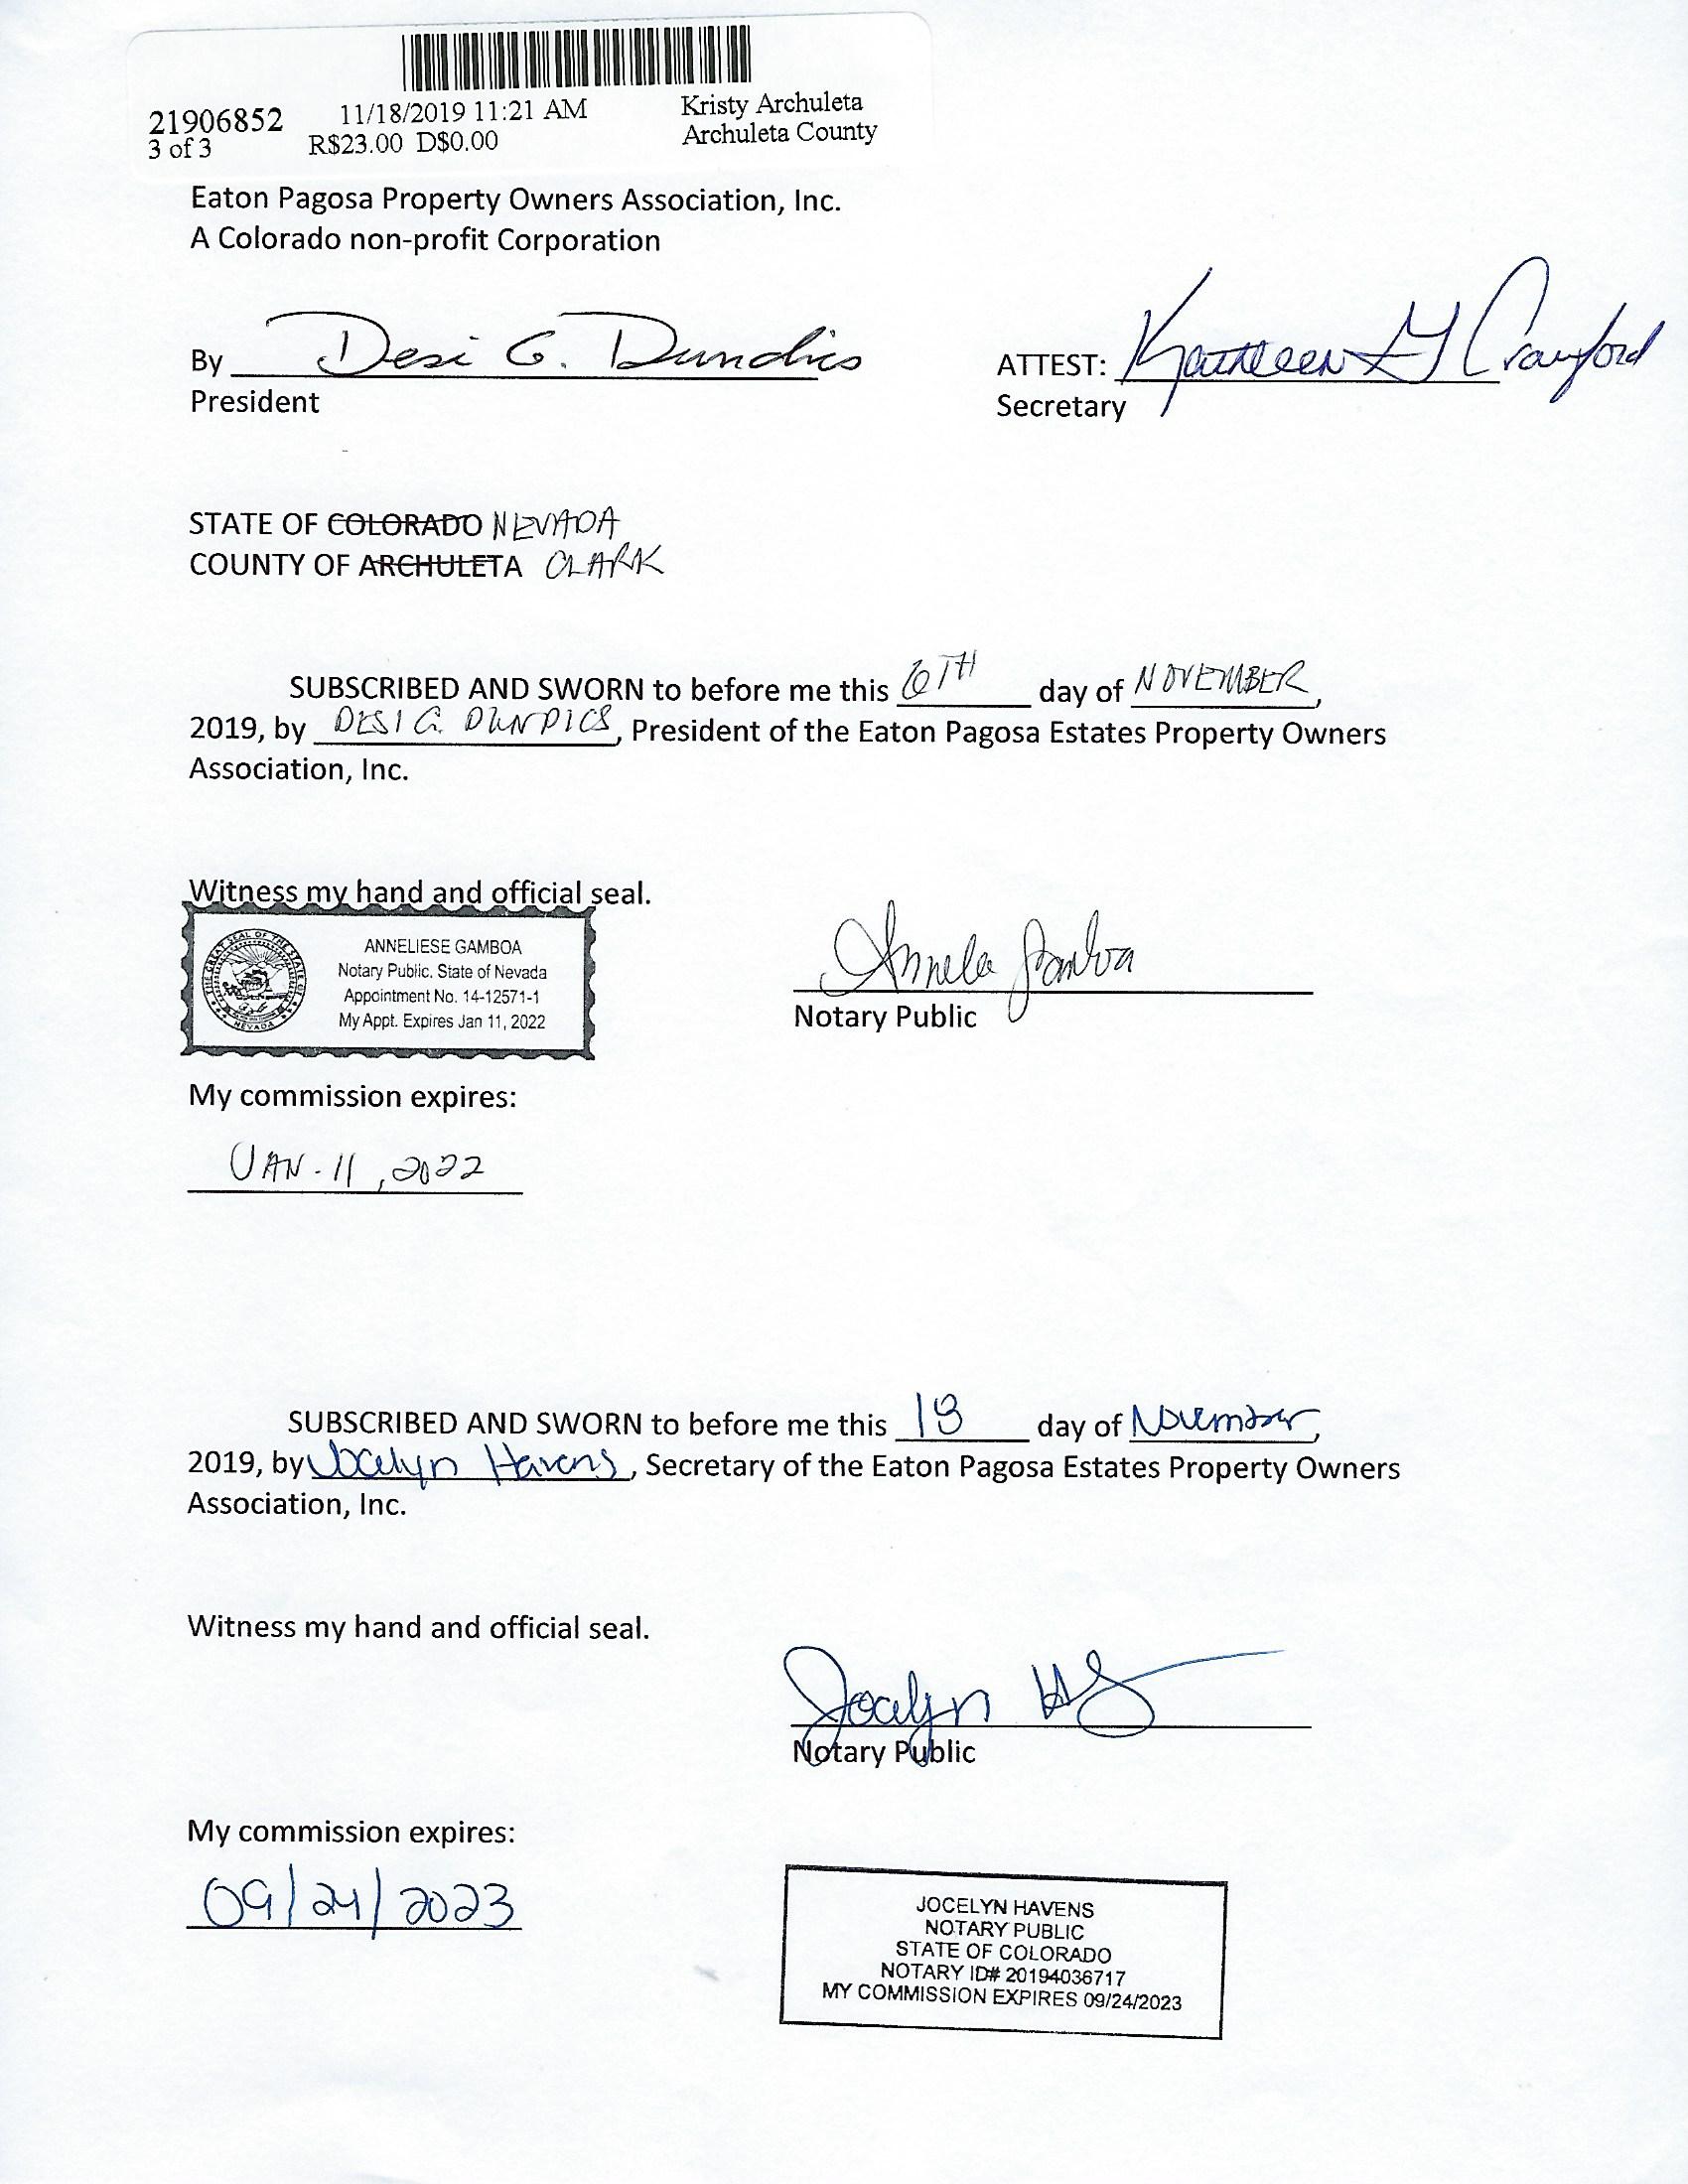 21906852 11/18/2019 11:21 AM Kristy Archuleta
3 of 3 R$23.00 D$0.00 Archuleta County
Eaton Pagosa Property Owners Association, Inc.
A Colorado non-profit Corporation
By Desi G. Dundics ATTEST: Kathleen G Crawford
President Secretary
STATE OF COLORADO NEVADA
COUNTY OF ARCHULETA CLARK
SUBSCRIBED AND SWORN to before me this 6TH day of NOVEMBER,
2019, by DESI G. DUNDICS, President of the Eaton Pagosa Estates Property Owners
Association, Inc.
Witness my hand and official seal.
THE GREAT SEAL OF THE STATE OF NEVADA
ANNELIESE GAMBOA
Notary Public, State of Nevada
Appointment No. 14-12571-1
My Appt. Expires Jan 11, 2022
Notary Public
My commission expires:
JAN. 11, 2022
SUBSCRIBED AND SWORN to before me this 18 day of November,
2019, by Jocelyn Havens, Secretary of the Eaton Pagosa Estates Property Owners
Association, Inc.
Witness my hand and official seal.
Jocelyn
Notary Public
My commission expires:
09/24/2023
JOCELYN HAVENS
NOTARY PUBLIC
STATE OF COLORADO
NOTARY ID# 20194036717
MY COMMISSION EXPIRES 09/24/2023